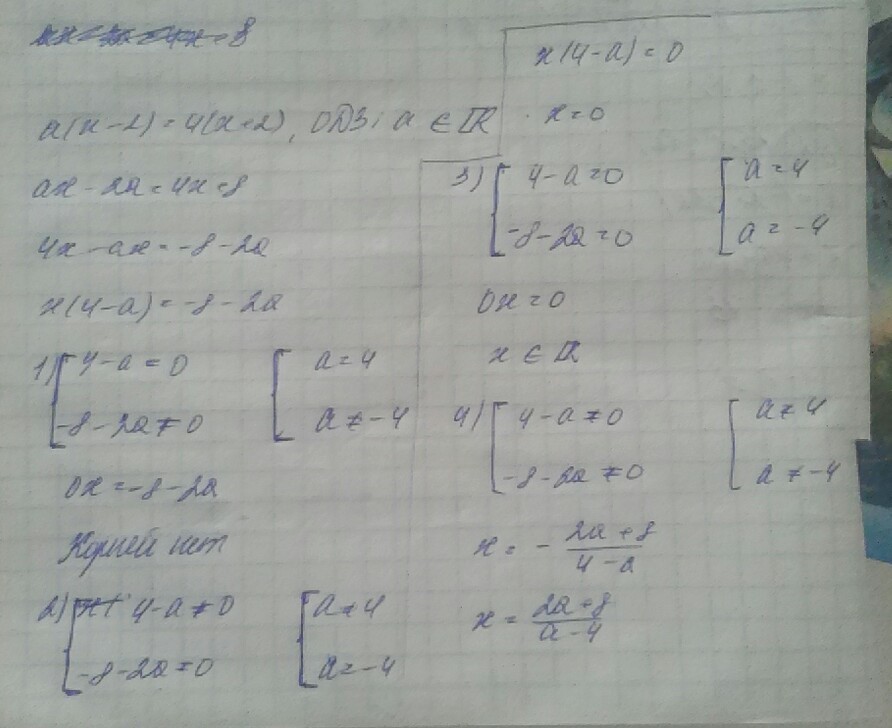 a(x-2)=4(x+2), ОДЗ: a ∈ ℝ
ax-2a=4x+8
4x-ax=-8-2a
x(4-a)=-8-2a
1) [ 4-a=0 [ a=4
-8-2a≠0 a≠-4
0x=-8-2a
Корней нет
2) [ 4-a≠0 [ a≠4
-8-2a=0 a=-4
x(4-a)=0
x=0
3) [ 4-a=0 [ a=4
-8-2a=0 a=-4
0x=0
x ∈ ℝ
4) [ 4-a≠0 [ a≠4
-8-2a≠0 a≠-4
x = - (2a+8)/(4-a)
x = (2a+8)/(a-4)